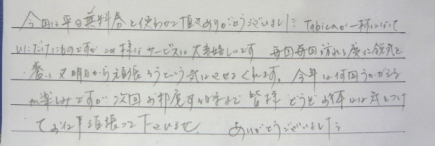 今回は平日無料券を使わせて頂きありがとうございました
いただけたものですが この様なサービスは大変嬉しいです 毎回毎回訪れる度に
又明日から頑張ろうという気にさせてくれます。今年は何回うかがえる
か楽しみですが 次回お邪魔する時まで 皆様 どうぞお体には気をつけ
て お仕事頑張って下さいませ。 ありがとうございました